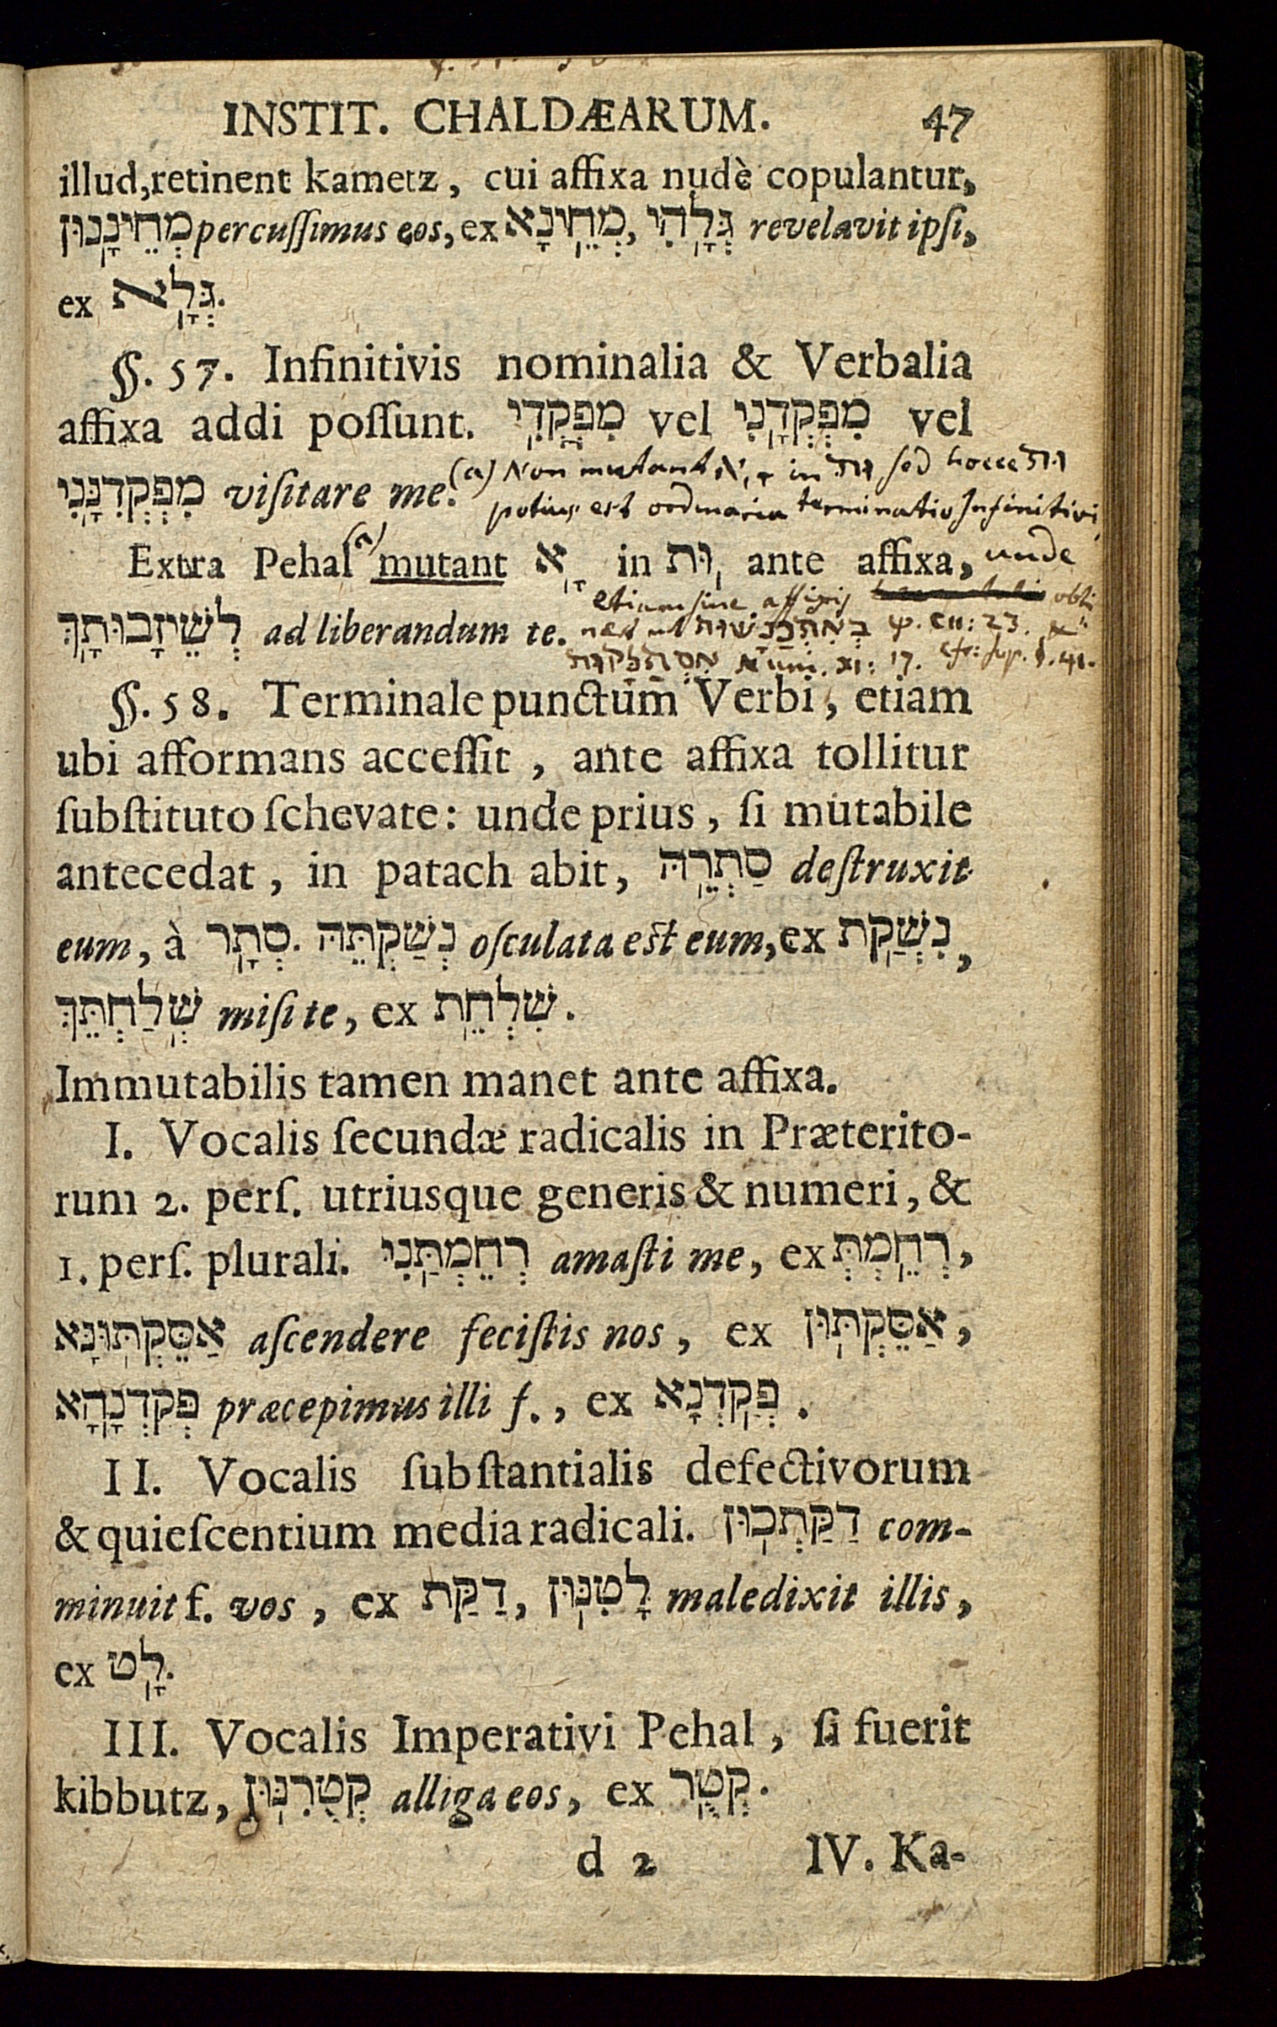 INSTIT. CHALDÆARUM. 47
illud, retinent kametz, cui affixa nudè copulantur,
מְחֵינָנוּן percuſſimus eos, ex מְחֵינָא, גְּלָהִי revelavit ipſi,
ex גְּלָא.
§. 57. Infinitivis nominalia & Verbalia
affixa addi poſſunt. מִפְּקֳדִי vel מִפְּקְדָנִי vel
מִפְּקְדִנָּנִי viſitare me. (a) Non mutant א in וּת sed hocce וּת
potius est ordinaria terminatio Infinitivi,
Extra Pehal (a) mutant אָ in וּת, ante affixa, unde
etiam sine affixis obti
לְשֵׁיזָבוּתָךְ ad liberandum te. net ut בְּאִתְכַנָּשׁוּת ψ. CII: 23. &
אִסְתַּלָּקוּת Num. XI: 17. cfr: sup. §. 41.
§. 58. Terminale punctum Verbi, etiam
ubi afformans acceſſit, ante affixa tollitur
ſubſtituto ſchevate: unde prius, ſi mutabile
antecedat, in patach abit, סַתְרֵהּ deſtruxit
eum, à סְתָר. נְשַׁקְתֵּהּ oſculata est eum, ex נִשְׁקַת,
שְׁלַחְתֵּךְ miſi te, ex שִׁלְחֵת.
Immutabilis tamen manet ante affixa.
I. Vocalis ſecundæ radicalis in Præterito-
rum 2. perſ. utriusque generis & numeri, &
1. perſ. plurali. רְחֵמְתַּנִי amaſti me, ex רְחֵמְתְּ,
אַסֵּקְתּוּנָא aſcendere feciſtis nos, ex אַסֵּקְתּוּן,
פְּקִדְנָהָא præcepimus illi f., ex פְּקִדְנָא.
II. Vocalis ſubſtantialis defectivorum
& quieſcentium media radicali. דַקַּתְכוּן com-
minuit f. vos, ex דַקַּת, לָטִנּוּן maledixit illis,
ex לָט.
III. Vocalis Imperativi Pehal, ſi fuerit
kibbutz, קְטֻרִנּוּן alliga eos, ex קְטֻר.
d 2 IV. Ka-